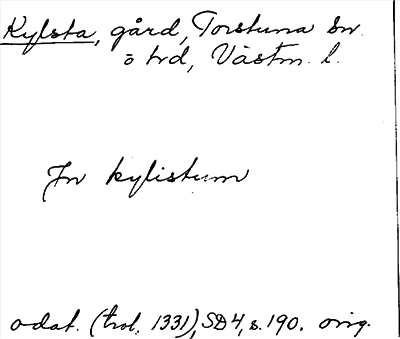 Kylsta, gård, Torstuna sn.
ö hd, Västm. l.
Jn kylistum
odat. (trol. 1331), SD 4, s. 190. orig.